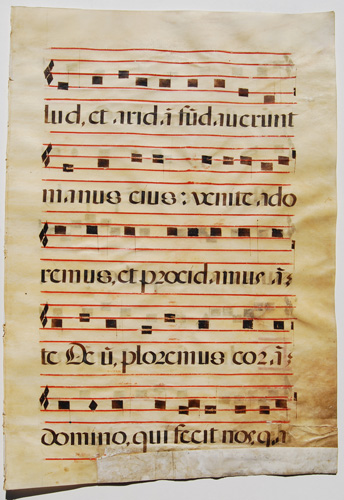 lud, et aridã fũdaverunt
manus eius: venite ado
remus, et procidamus ã:
te Deũ, ploremus corã:
domino, qui fecit nos, q.a